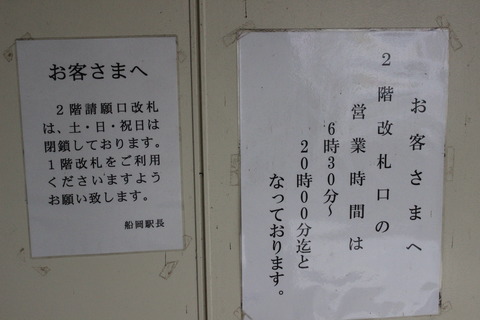 お客さまへ
２階請願口改札
は、土・日・祝日は
閉鎖しております。
１階改札をご利用
くださいますよう
お願い致します。
船岡駅長
お客さまへ
２階改札口の
営業時間は
６時３０分～
２０時００分迄と
なっております。